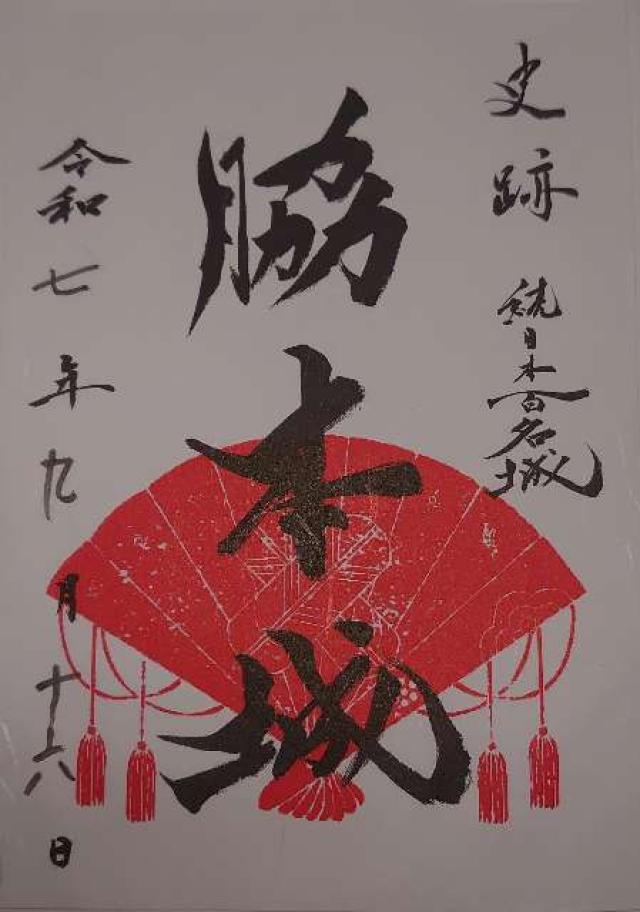 史跡
続日本百名城
脇本城
令和七年九月十六日